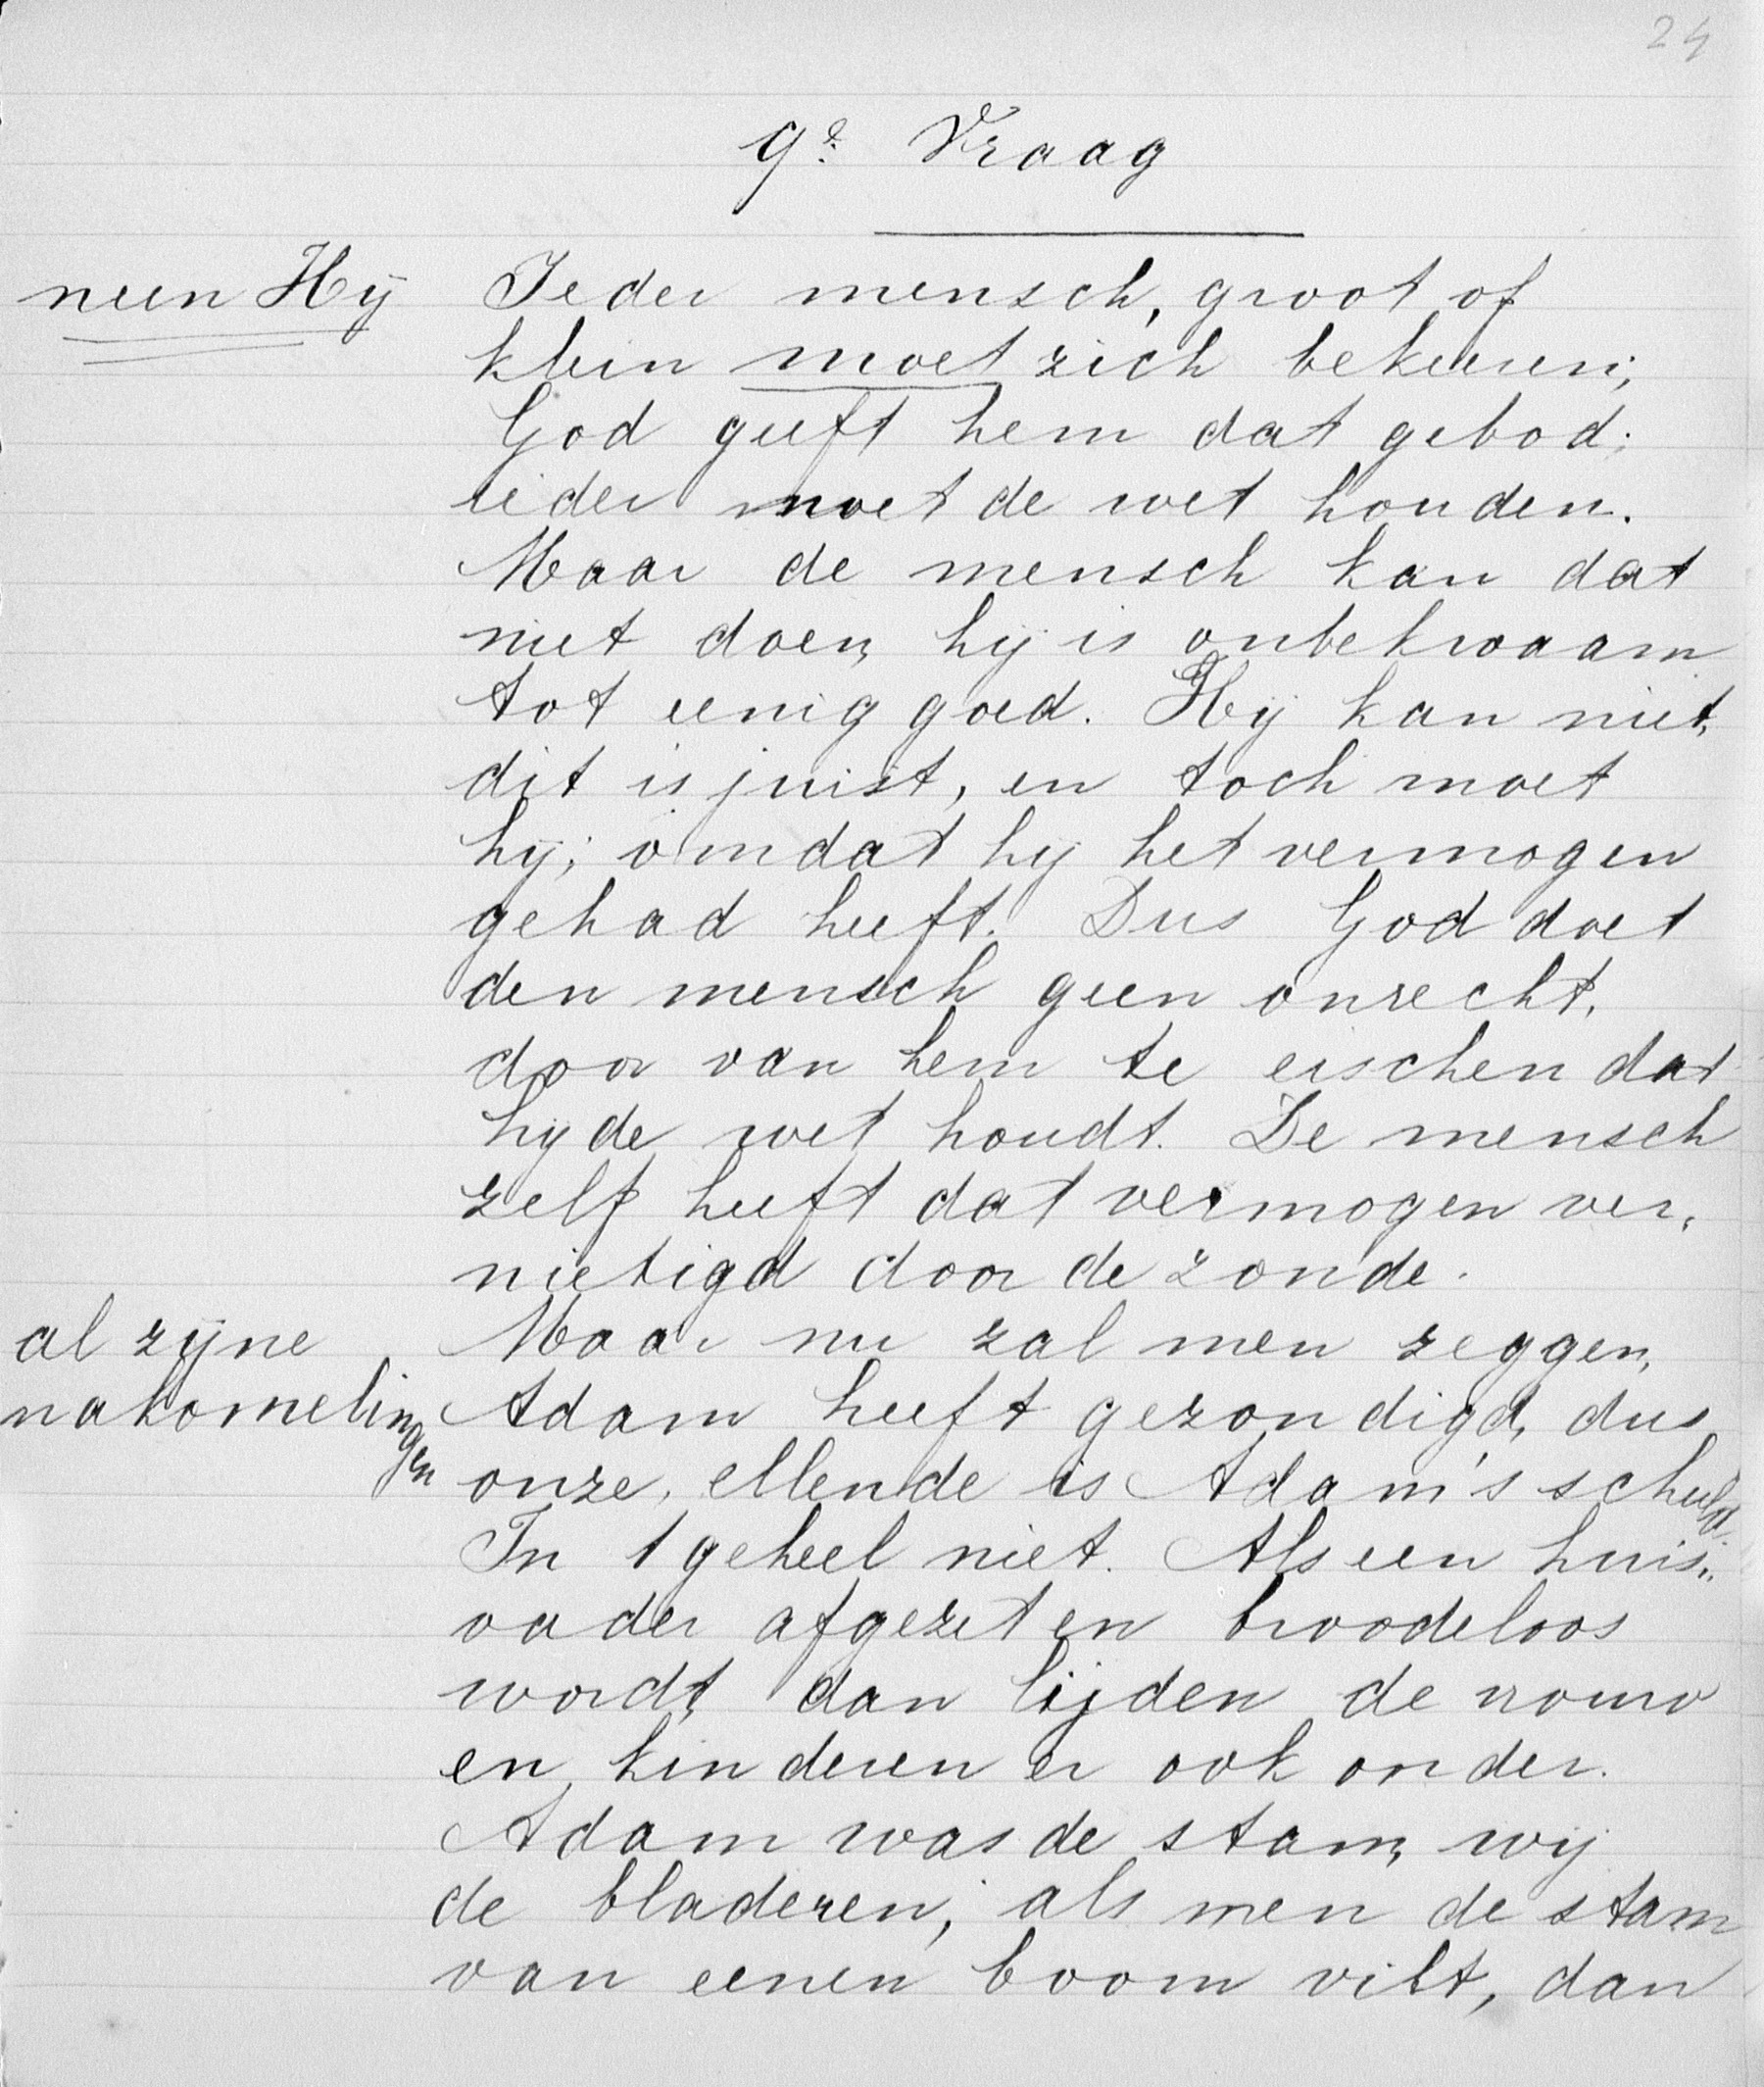 24
9e Vraag
neen Hij
Ieder mensch, groot of
klein moet zich bekeeren;
God geeft hem dat gebod;
ieder moet de wet houden.
Maar de mensch kan dat
niet doen, hij is onbekwaam
tot eenig goed. Hij kan niet,
dit is juist, en toch moet
hij; omdat hij het vermogen
gehad heeft. Dus God doet
den mensch geen onrecht,
door van hem te eischen dat
hij de wet houdt. De mensch
zelf heeft dat vermogen ver,
nietigd door de zonde.
al zijne
nakomelingen
Maar nu zal men zeggen,
Adam heeft gezondigd, dus
onze, ellende is Adam's schuld.
In 1 geheel niet. Als een huis„
vader afgezet en broodeloos
wordt, dan lijden de vrouw
en kinderen er ook onder.
Adam was de stam, wij
de bladeren; als men de stam
van eenen boom vilt, dan